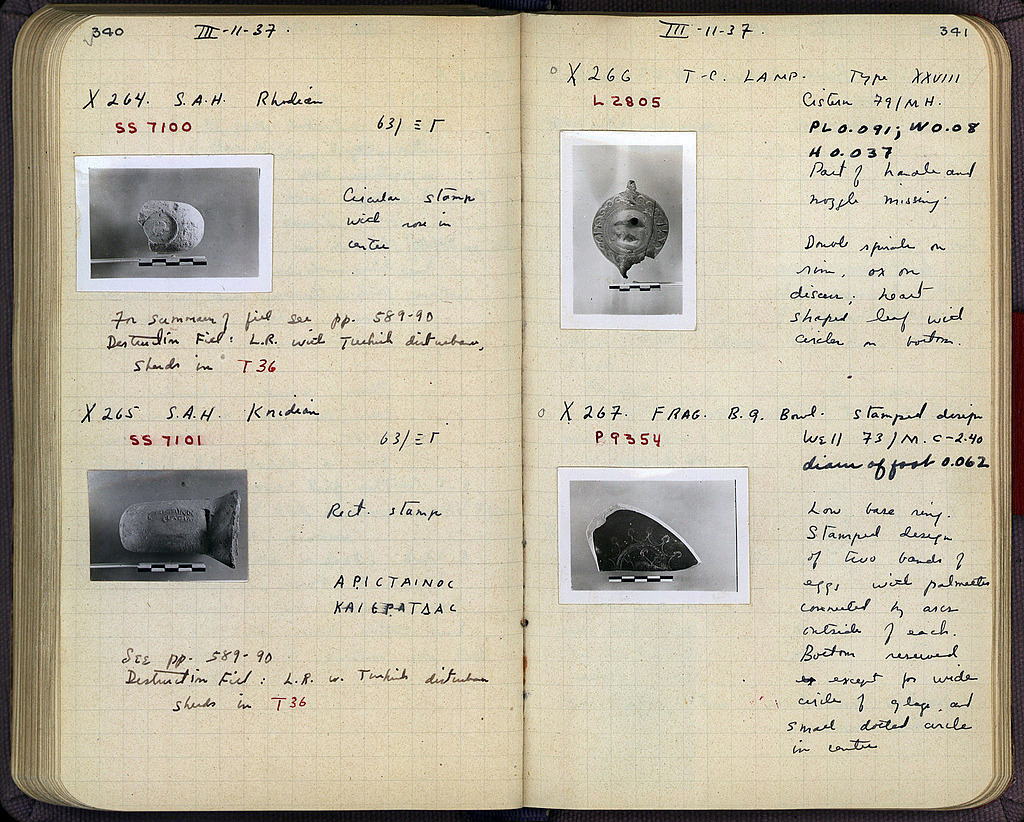 340
III-11-37.
X 264. S.A.H. Rhodian
SS 7100
63/ΞΓ
Circular stamp
with rose in
centre
For summary of fill see pp. 589-90
Destruction Fill: L.R. with Turkish disturban,
sherds in T 36
X 265 S.A.H. Knidian
SS 7101
63/ΞΓ
Rect. stamp
ΑΡΙCΤΑΙΝΟC
ΚΑΙ ΕΡΑΤΔΑC
See pp. 589-90
Destruction Fill: L.R. w. Turkish disturban
sherds in T 36
III-11-37.
341
X 266 T-C. LAMP. Type XXVIII
L 2805
Cistern 79/ΜΗ.
PL 0.091; W 0.08
H 0.037
Part of handle and
nozzle missing.
Double spirals on
rim, ox on
discus; heart
shaped leaf with
circles on bottom.
X 267. FRAG. B.G. Bowl. Stamped design
P 9354
Well 73/Μ. C-2.40
diam of foot 0.062
Low base ring.
Stamped design
of two bands of
eggs with palmettes
connected by arcs
outside of each.
Bottom reserved
except for wide
circle of glaze, and
small dotted circle
in centre